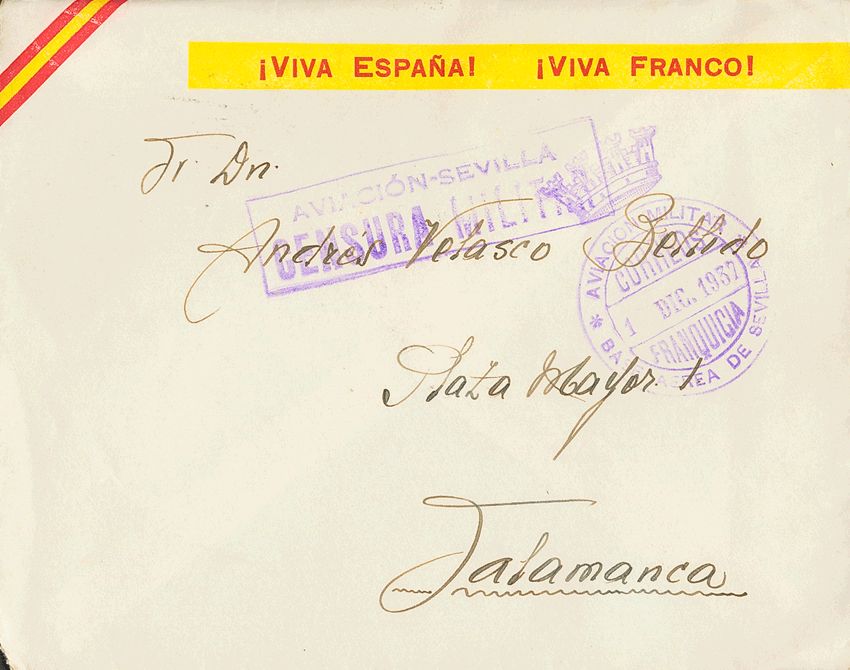 ¡VIVA ESPAÑA! ¡VIVA FRANCO!
Sr. Dn.
AVIACIÓN-SEVILLA
CENSURA MILITAR
Andrés Velasco Bellido
AVIACION MILITAR
CORREOS
1 DIC. 1937
FRANQUICIA
* BASE AEREA DE SEVILLA
Plaza Mayor 1
Salamanca